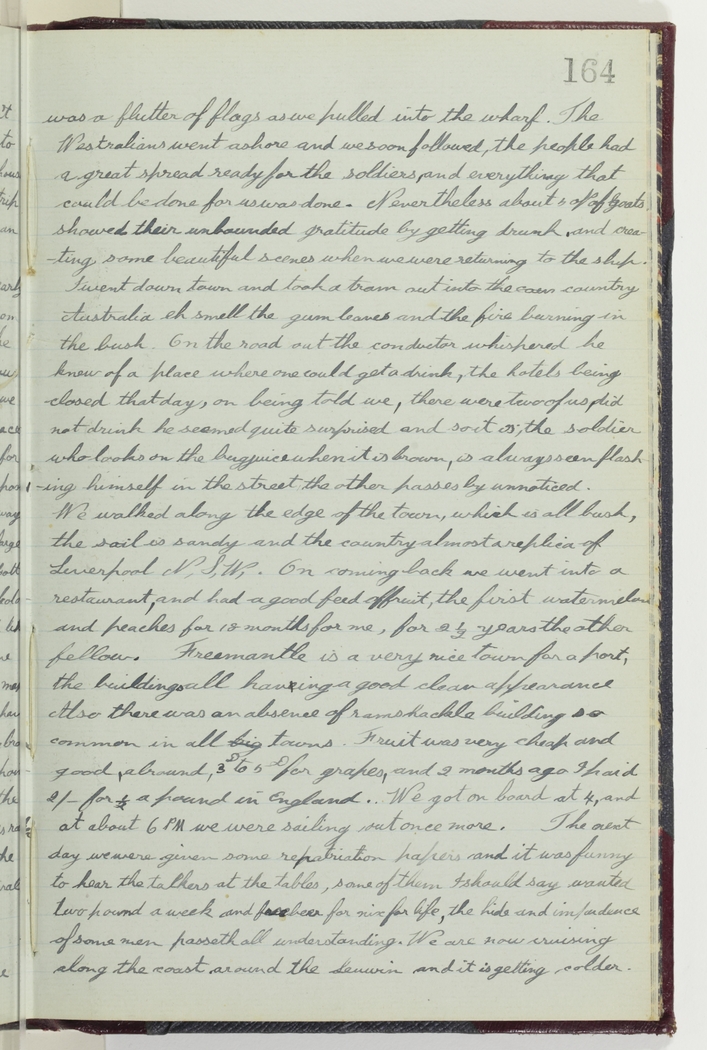 164
was a flutter of flags as we pulled into the wharf. The
Westralians went ashore and we soon followed, the people had
a great spread ready for the soldiers, and everything that
could be done for us was done. Nevertheless about of Goats
showed their unbounded gratitude by getting drunk, and crea-
-ting some beautiful scenes when we were returning to the ship.
I went down town and took a tram out into the country
Australia eh smell the gum leaves and the fire burning in
the bush. On the road out the conductor whispered he
knew of a place where one could get a drink, the hotels being
closed that day, on being told we, there were two of us, did
not drink he seemed quite surprised and so it is, the soldier
who looks on the bugjuice when it is brown, is always seen flash-
-ing himself in the street, the other passes by unnoticed.
We walked along the edge of the town, which is all bush,
the soil is sandy and the country almost a replica of
Liverpool N.S.W. On coming back we went into a
restaurant, and had a good feed of fruit, the first watermelon
and peaches for 18 months for me, for 2½ years the other
fellow. Freemantle is a very nice town for a port,
the buildings all having a good clean appearance
Also there was an absence of ramshackle building so
common in all big towns. Fruit was very cheap and
good, abound, 3D to 5D for grapes, and 2 months ago I paid
2/- for ½ a pound in England.. We got on board at 4, and
at about 6 PM we were sailing out once more. The next
day we were given some repatriation papers and it was funny
to hear the talkers at the tables, some of them I should say wanted
two pound a week and free beer for nix for life, the hide and impudence
of some men passeth all understanding. We are now cruising
along the coast around the Leuwin and it is getting colder.